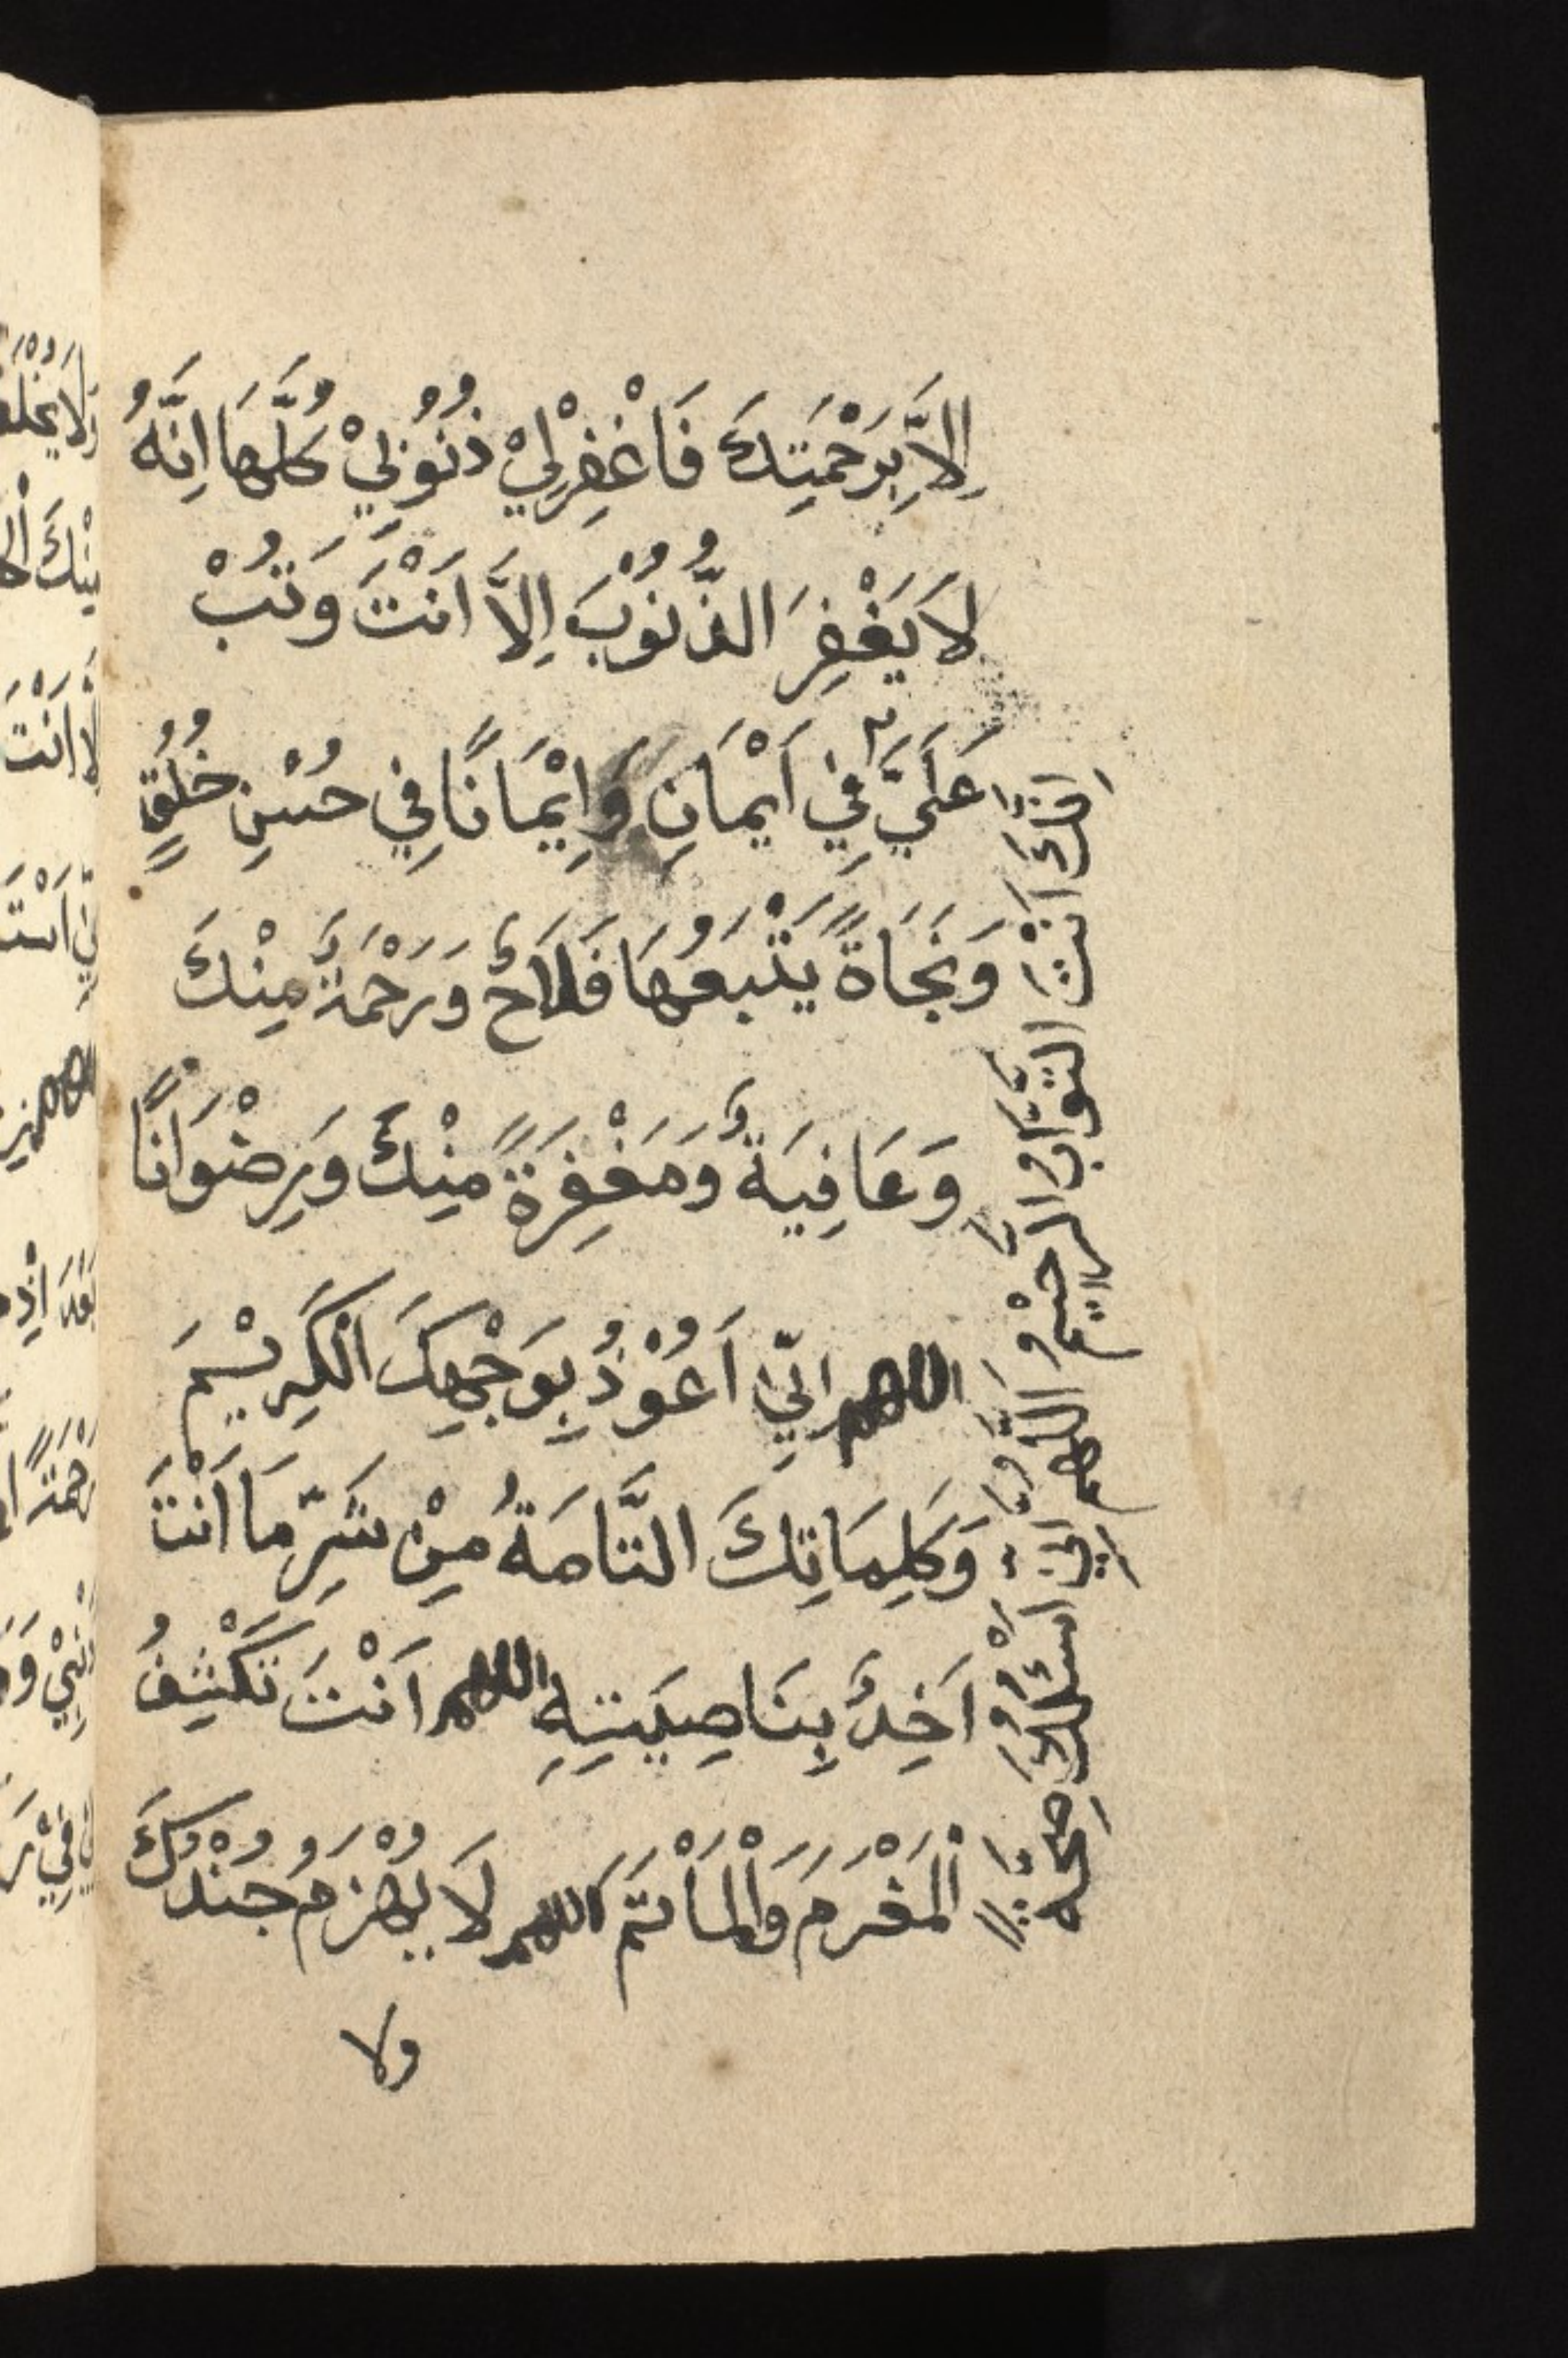 اِلاَّ بِرَحْمَتِكَ فَاغْفِرْلِيْ ذُنُوْبِيْ كُلَّهَا اِنَّهُ
لاَ يَغْفِرَ الذُّنُوْبَ اِلاَّ اَنْتَ وَتُبْ
عَلَيَّ فِي اَيْمَانِ وَاِيْمَانًا فِي حُسْنِ خُلُقٍ
وَنَجَاةً يَتْبَعُهَا فَلاَحٌ وَرَحْمَةً مِنْكَ
وَعَافِيَةً وَمَغْفِرَةً مِنْكَ وَرِضْوَانًا
اللهم اِنِّي اَعُوْذُ بِوَجْهِكَ الْكَرِيْمَ
وَكَلِمَاتِكَ التَّامَةُ مِنْ شَرِّ مَا اَنْتَ
اَخِذٌ بِنَاصِيَتِهِ اللهم اَنْتَ تَكْشِفُ
الْمَغْرَمَ وَالْمَاْتَمَّ اللهم لاَ يُهْزَمُ جُنْدُكَ
ولا
اِنَّكَ اَنْتَ التَّوَّابُ الرَّحِيْمُ اللّهم اِنِّي اَسْئَلُكَ صِحَّةً